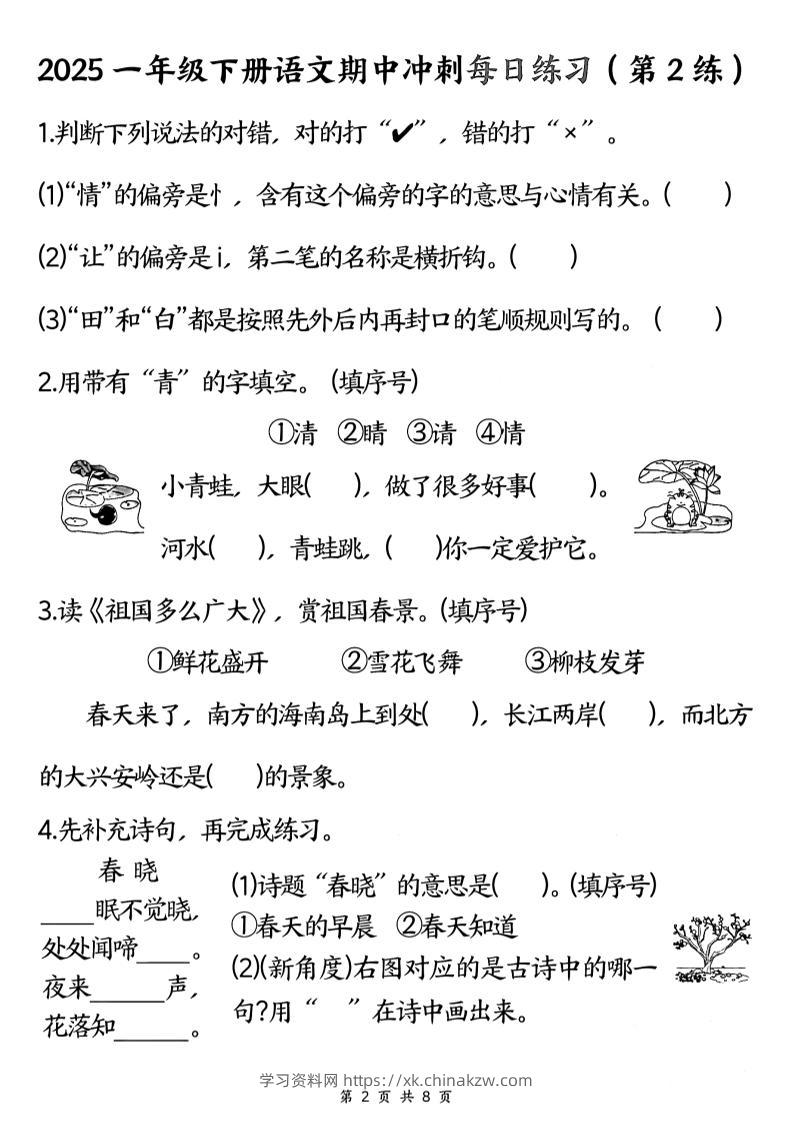 2025 一年级下册语文期中冲刺每日练习（第 2 练）
1.判断下列说法的对错，对的打“✔”，错的打“×”。
(1)“情”的偏旁是忄，含有这个偏旁的字的意思与心情有关。(  )
(2)“让”的偏旁是i，第二笔的名称是横折钩。(  )
(3)“田”和“白”都是按照先外后内再封口的笔顺规则写的。(  )
2.用带有“青”的字填空。(填序号)
①清 ②晴 ③请 ④情
小青蛙，大眼(  )，做了很多好事(  )。
河水(  )，青蛙跳，(  )你一定爱护它。
3.读《祖国多么广大》，赏祖国春景。(填序号)
①鲜花盛开 ②雪花飞舞 ③柳枝发芽
春天来了，南方的海南岛上到处(  )，长江两岸(  )，而北方
的大兴安岭还是(  )的景象。
4.先补充诗句，再完成练习。
春 晓
____眠不觉晓，
处处闻啼____。
夜来______声，
花落知______。
(1)诗题“春晓”的意思是(  )。(填序号)
①春天的早晨 ②春天知道
(2)(新角度)右图对应的是古诗中的哪一
句?用“  ”在诗中画出来。
学习资料网 https://xk.chinakzw.com
第 2 页 共 8 页